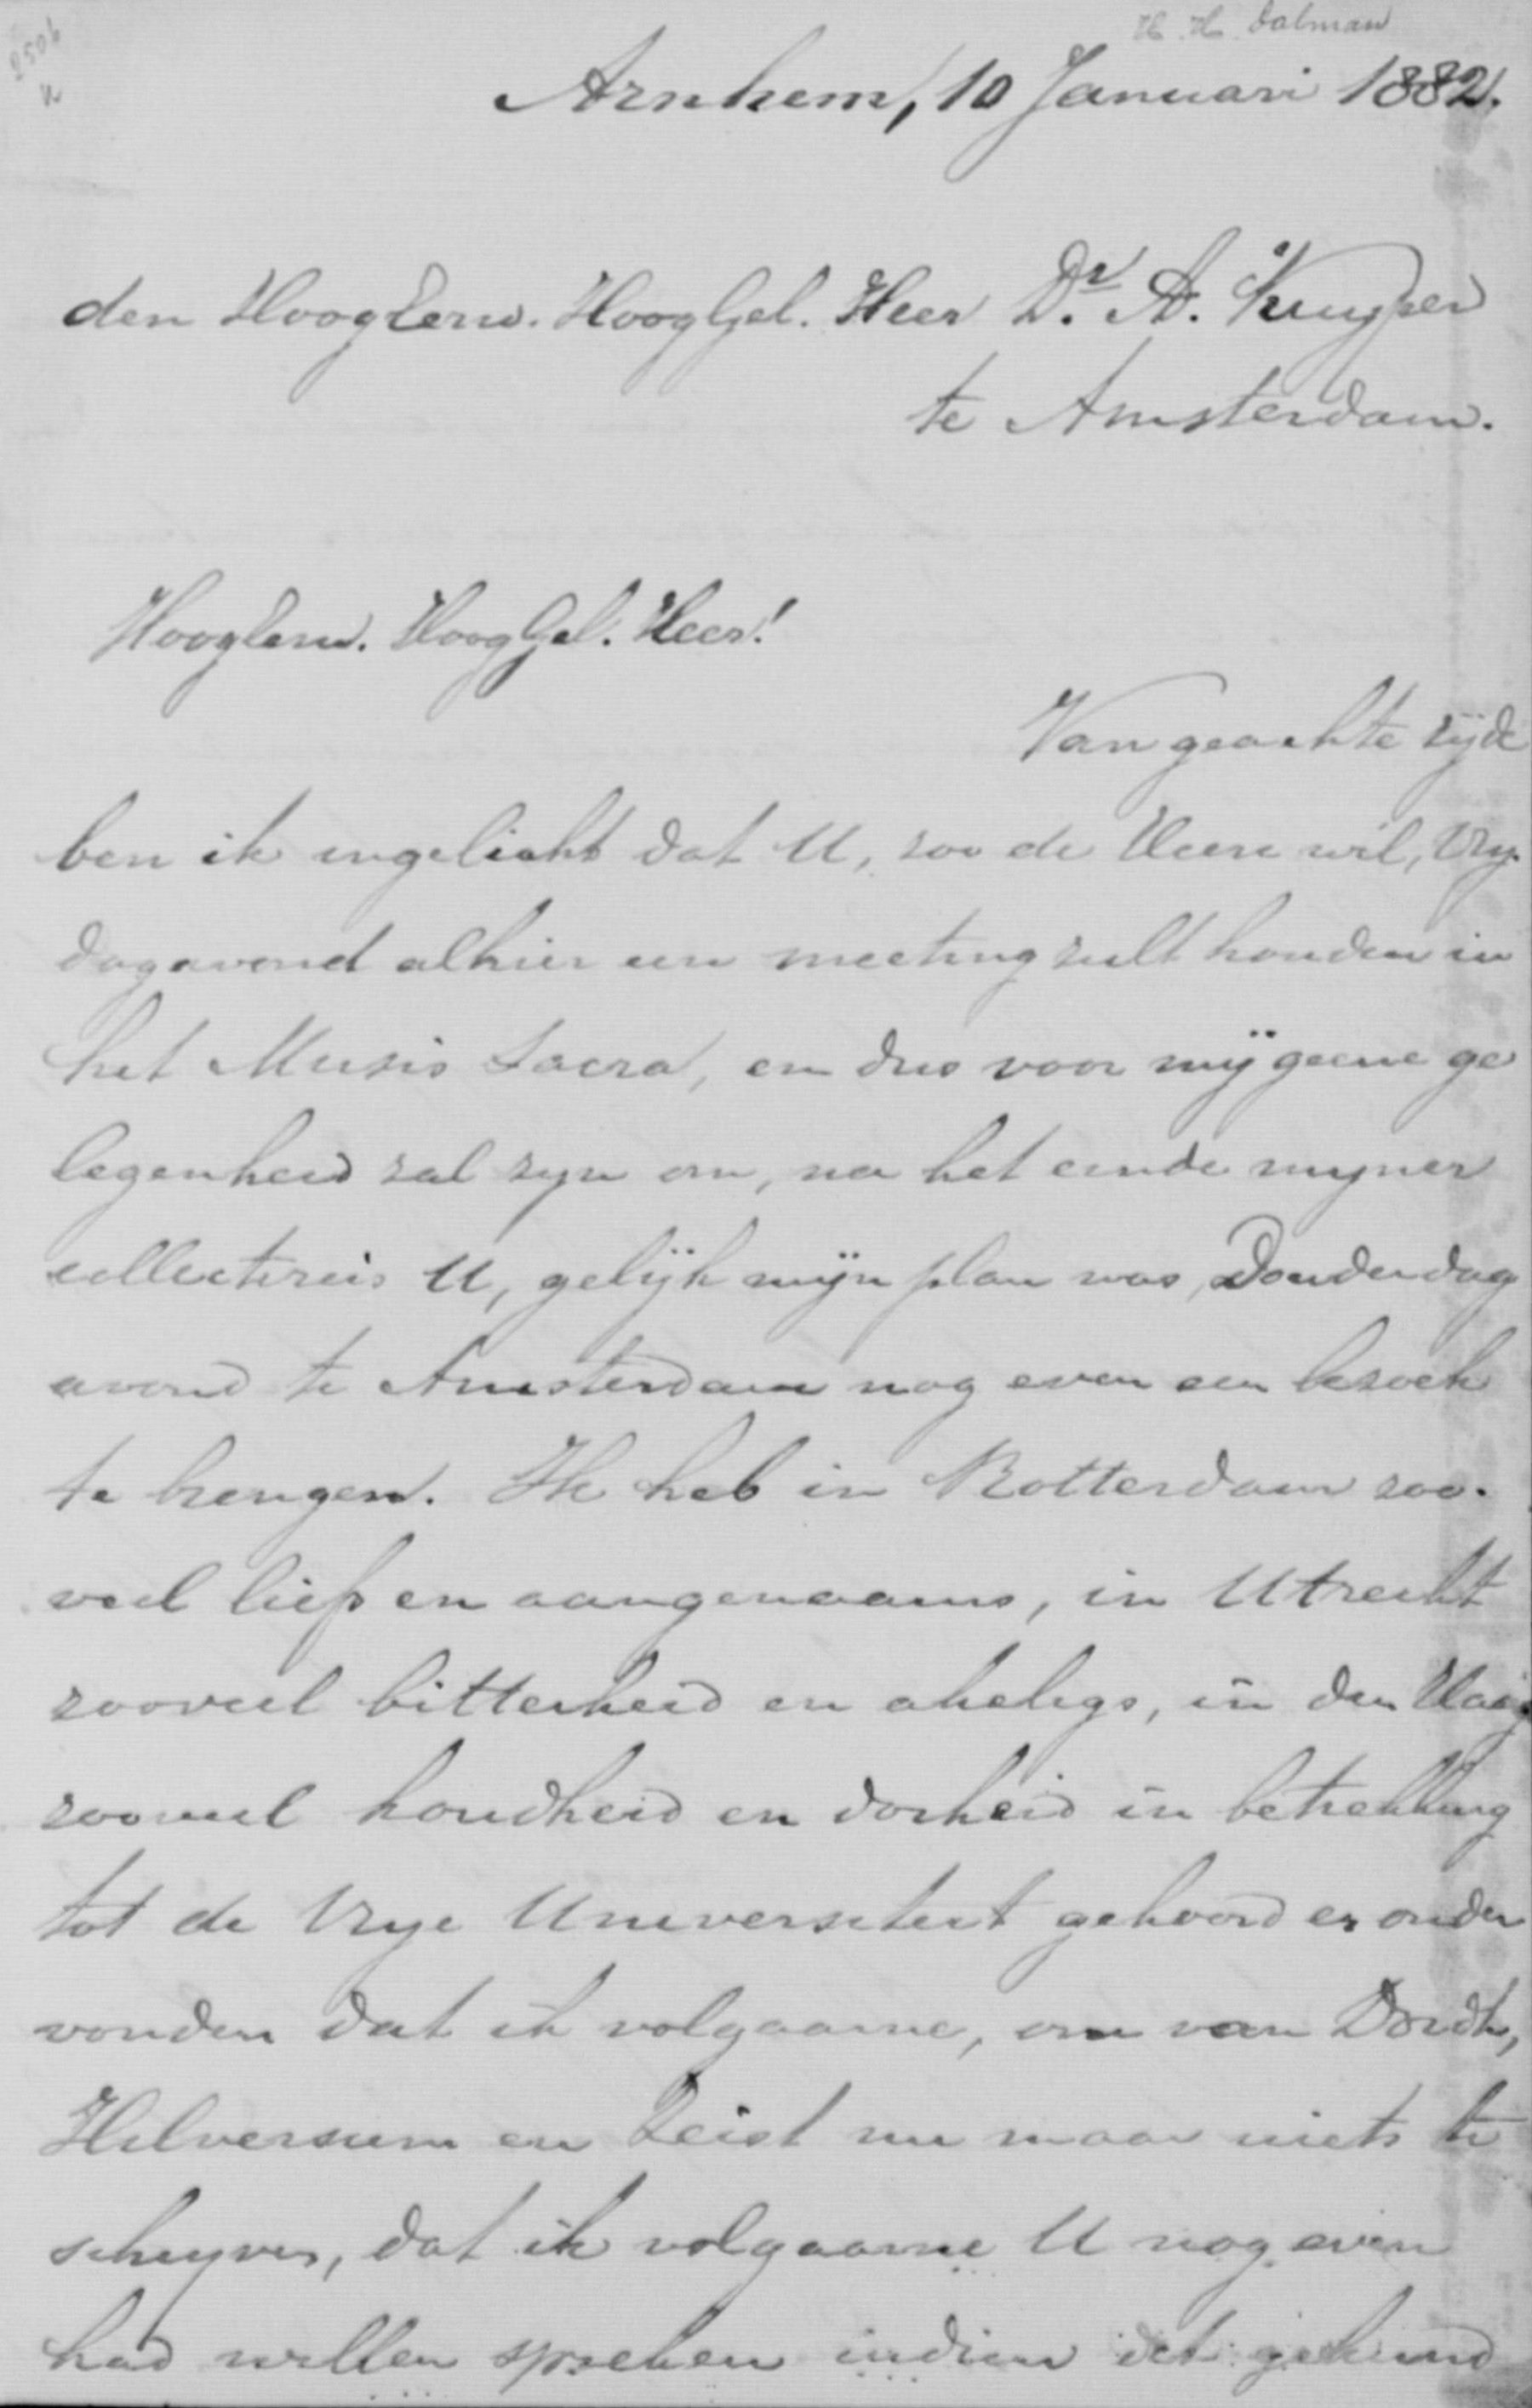 H. H. Dalman
2506
Arnhem, 10 Januari 1882.
den HoogEerw. HoogGel. Heer Dr. A. Kuyper
te Amsterdam.
HoogEerw. HoogGel. Heer!
Van geachte zijde
ben ik ingelicht dat U, zoo de Heere wil, Vry-
dagavond alhier een meeting zult houden in
het Musis Sacra, en dus voor mij geene ge
legenheid zal zyn om, na het einde myner
collectereis U, gelijk mijn plan was, Donderdag
avond te Amsterdam nog even een bezoek
te brengen. Ik heb in Rotterdam zoo-
veel liefs en aangenaams, in Utrecht
zooveel bitterheid en akeligs, in den Haag
zooveel koudheid en dorheid in betrekking
tot de Vrye Universiteit gehoord en onder
vonden dat ik volgaarne, om van Dordt,
Hilversum en Zeist nu maar niets te
schryven, dat ik volgaarne U nog even
had willen spreken indien dit gekund